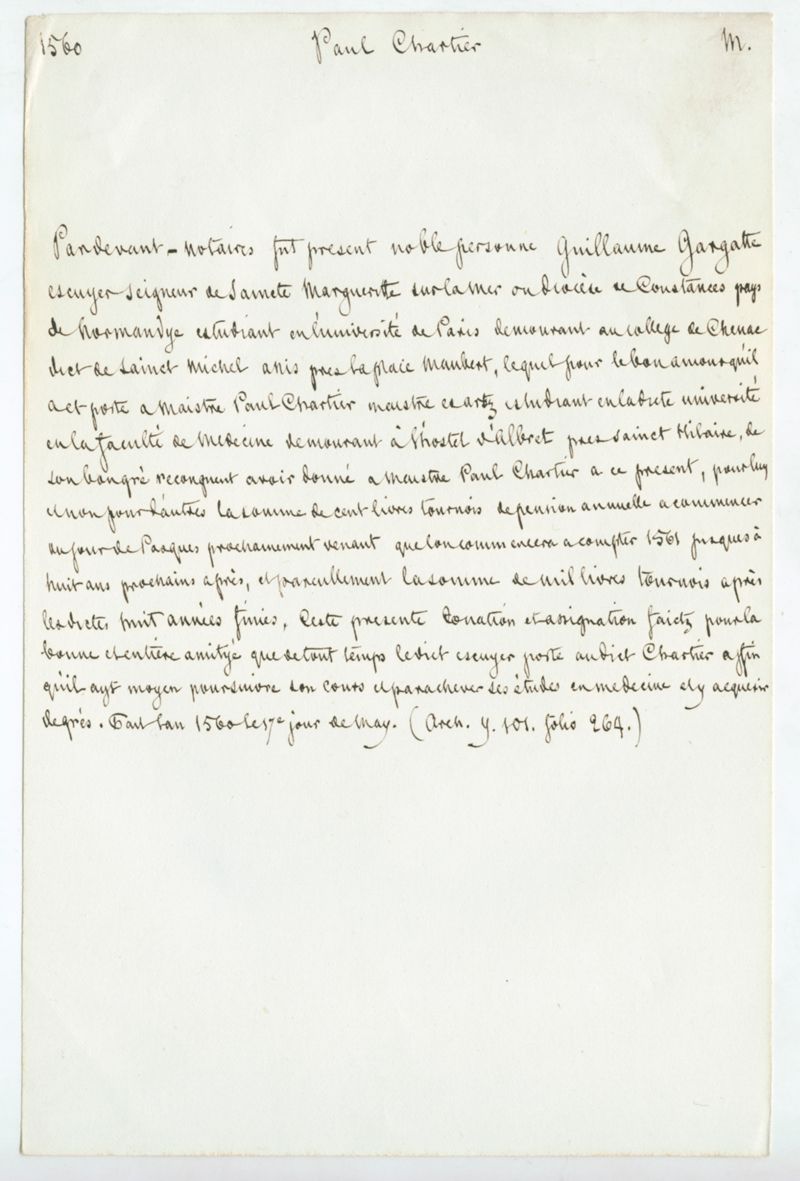 1560 Paul Chartier M.
Pardevant – notaires fut present noble personne Guillaume Gargatte
escuyer seigneur de Saincte Marguerite sur la mer ou diocèse de Constances pays
de Normandye estudiant en l'université de Paris demourant au college de Chenac
dict de Sainct Michel assis pres la place Maubert, lequel pour le bon amour qu'il
a et porte a Maistre Paul Chartier maistre es artz estudiant en la dicte université
en la faculté de medecine demourant à l'hostel d'Albret pres Sainct Hilaire, de
son bon gré recongnut avoir donné a Maistre Paul Chartier a ce present, pour luy
et non pour d'autres la somme de cent livres tournois de pension annuelle a commencer
au jour de Pasques prochainement venant que lon commencera a compter 1561 jusques à
huit ans prochains après, et pareillement la somme de mil livres tournois après
les dictes huit années finies. Ceste presente donation et assignation faictz pour la
bonne et entière amityé que de tout temps le dict escuyer porte au dict Chartier affin
qu'il ayt moyen poursuivre son cours et parachever ses études en medecine et y acquerir
degrés. Faut lan 1560 le 17e jour de May. (Arch. Y. 101. folio 264.)